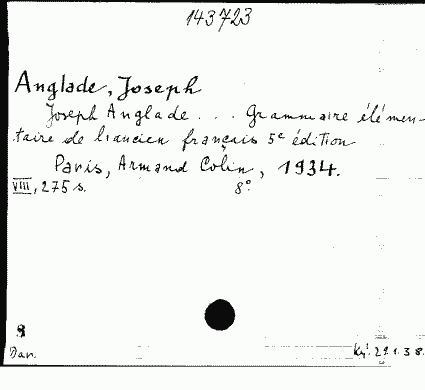 143723
Anglade, Joseph
Joseph Anglade . . . Grammaire élémen-
taire de l'ancien français 5e édition
Paris, Armand Colin, 1934.
VIII, 275 s. 8°.
9
Dar. 29.1.38.